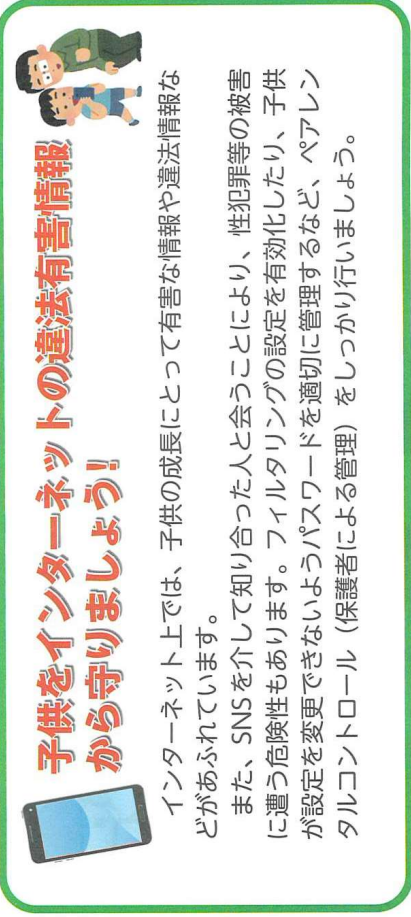 子供をインターネットの違法有害情報
から守りましょう！
インターネット上では、子供の成長にとって有害な情報や違法情報な
どがあふれています。
また、SNSを介して知り合った人と会うことにより、性犯罪等の被害
に遭う危険性もあります。フィルタリングの設定を有効化したり、子供
が設定を変更できないようパスワードを適切に管理するなど、ペアレン
タルコントロール（保護者による管理）をしっかり行いましょう。